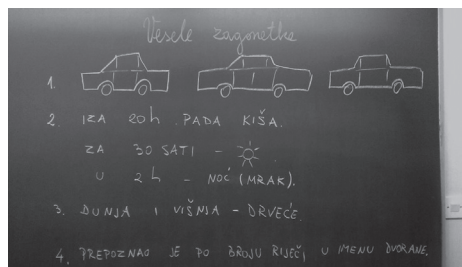 Vesele zagonetke
1.
2. IZA 20h PADA KIŠA.
ZA 30 SATI -
U 2h - NOĆ (MRAK).
3. DUNJA I VIŠNJA - DRVEĆE.
4. PREPOZNAO JE PO BROJU RIJEČI U IMENU DVORANE.